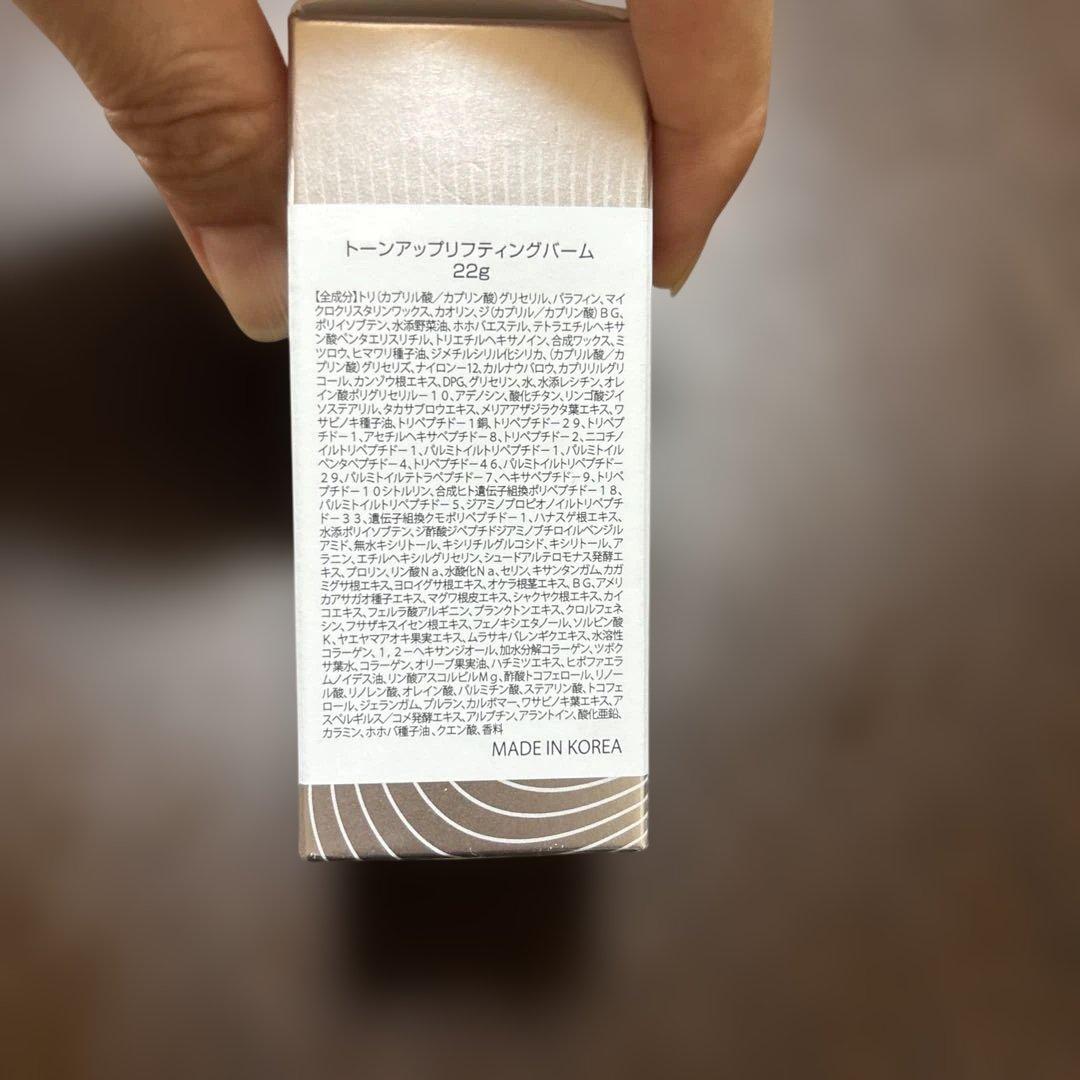 トーンアップリフティングバーム
22g
【全成分】トリ(カプリル酸／カプリン酸)グリセリル、パラフィン、マイ
クロクリスタリンワックス、カオリン、ジ(カプリル／カプリン酸)ＢＧ、
ポリイソブテン、水添野菜油、ホホバエステル、テトラエチルヘキサ
ン酸ペンタエリスリチル、トリエチルヘキサノイン、合成ワックス、ミ
ツロウ、ヒマワリ種子油、ジメチルシリル化シリカ、(カプリル酸／カ
プリン酸)グリセリズ、ナイロン－12、カルナウバロウ、カプリリルグリ
コール、カンゾウ根エキス、DPG、グリセリン、水、水添レシチン、オレ
イン酸ポリグリセリル－１０、アデノシン、酸化チタン、リンゴ酸ジイ
ソステアリル、タカサブロウエキス、メリアアザジラクタ葉エキス、ワ
サビノキ種子油、トリペプチド－１銅、トリペプチド－２９、トリペプ
チド－１、アセチルヘキサペプチド－８、トリペプチド－２、ニコチノ
イルトリペプチド－１、パルミトイルトリペプチド－１、パルミトイル
ペンタペプチド－４、トリペプチド－４６、パルミトイルトリペプチド－
２９、パルミトイルテトラペプチド－７、ヘキサペプチド－９、トリペ
プチド－１０シトルリン、合成ヒト遺伝子組換ポリペプチド－１８、
パルミトイルトリペプチド－５、ジアミノプロピオノイルトリペプチ
ド－３３、遺伝子組換クモポリペプチド－１、ハナスゲ根エキス、
水添ポリイソブテン、ジ酢酸ジペプチドジアミノブチロイルベンジル
アミド、無水キシリトール、キシリチルグルコシド、キシリトール、ア
ラニン、エチルヘキシルグリセリン、シュードアルテロモナス発酵エ
キス、プロリン、リン酸Ｎａ、水酸化Ｎａ、セリン、キサンタンガム、カガ
ミグサ根エキス、ヨロイグサ根エキス、オケラ根茎エキス、ＢＧ、アメリ
カアサガオ種子エキス、マグワ根皮エキス、シャクヤク根エキス、カイ
コエキス、フェルラ酸アルギニン、プランクトンエキス、クロルフェネ
シン、フサザキスイセン根エキス、フェノキシエタノール、ソルビン酸
Ｋ、ヤエヤマアオキ果実エキス、ムラサキバレンギクエキス、水溶性
コラーゲン、１，２－ヘキサンジオール、加水分解コラーゲン、ツボク
サ葉水、コラーゲン、オリーブ果実油、ハチミツエキス、ヒポファエラ
ムノイデス油、リン酸アスコルビルＭｇ、酢酸トコフェロール、リノー
ル酸、リノレン酸、オレイン酸、パルミチン酸、ステアリン酸、トコフェ
ロール、ジェランガム、プルラン、カルボマー、ワサビノキ葉エキス、ア
スペルギルス／コメ発酵エキス、アルブチン、アラントイン、酸化亜鉛、
カラミン、ホホバ種子油、クエン酸、香料
MADE IN KOREA